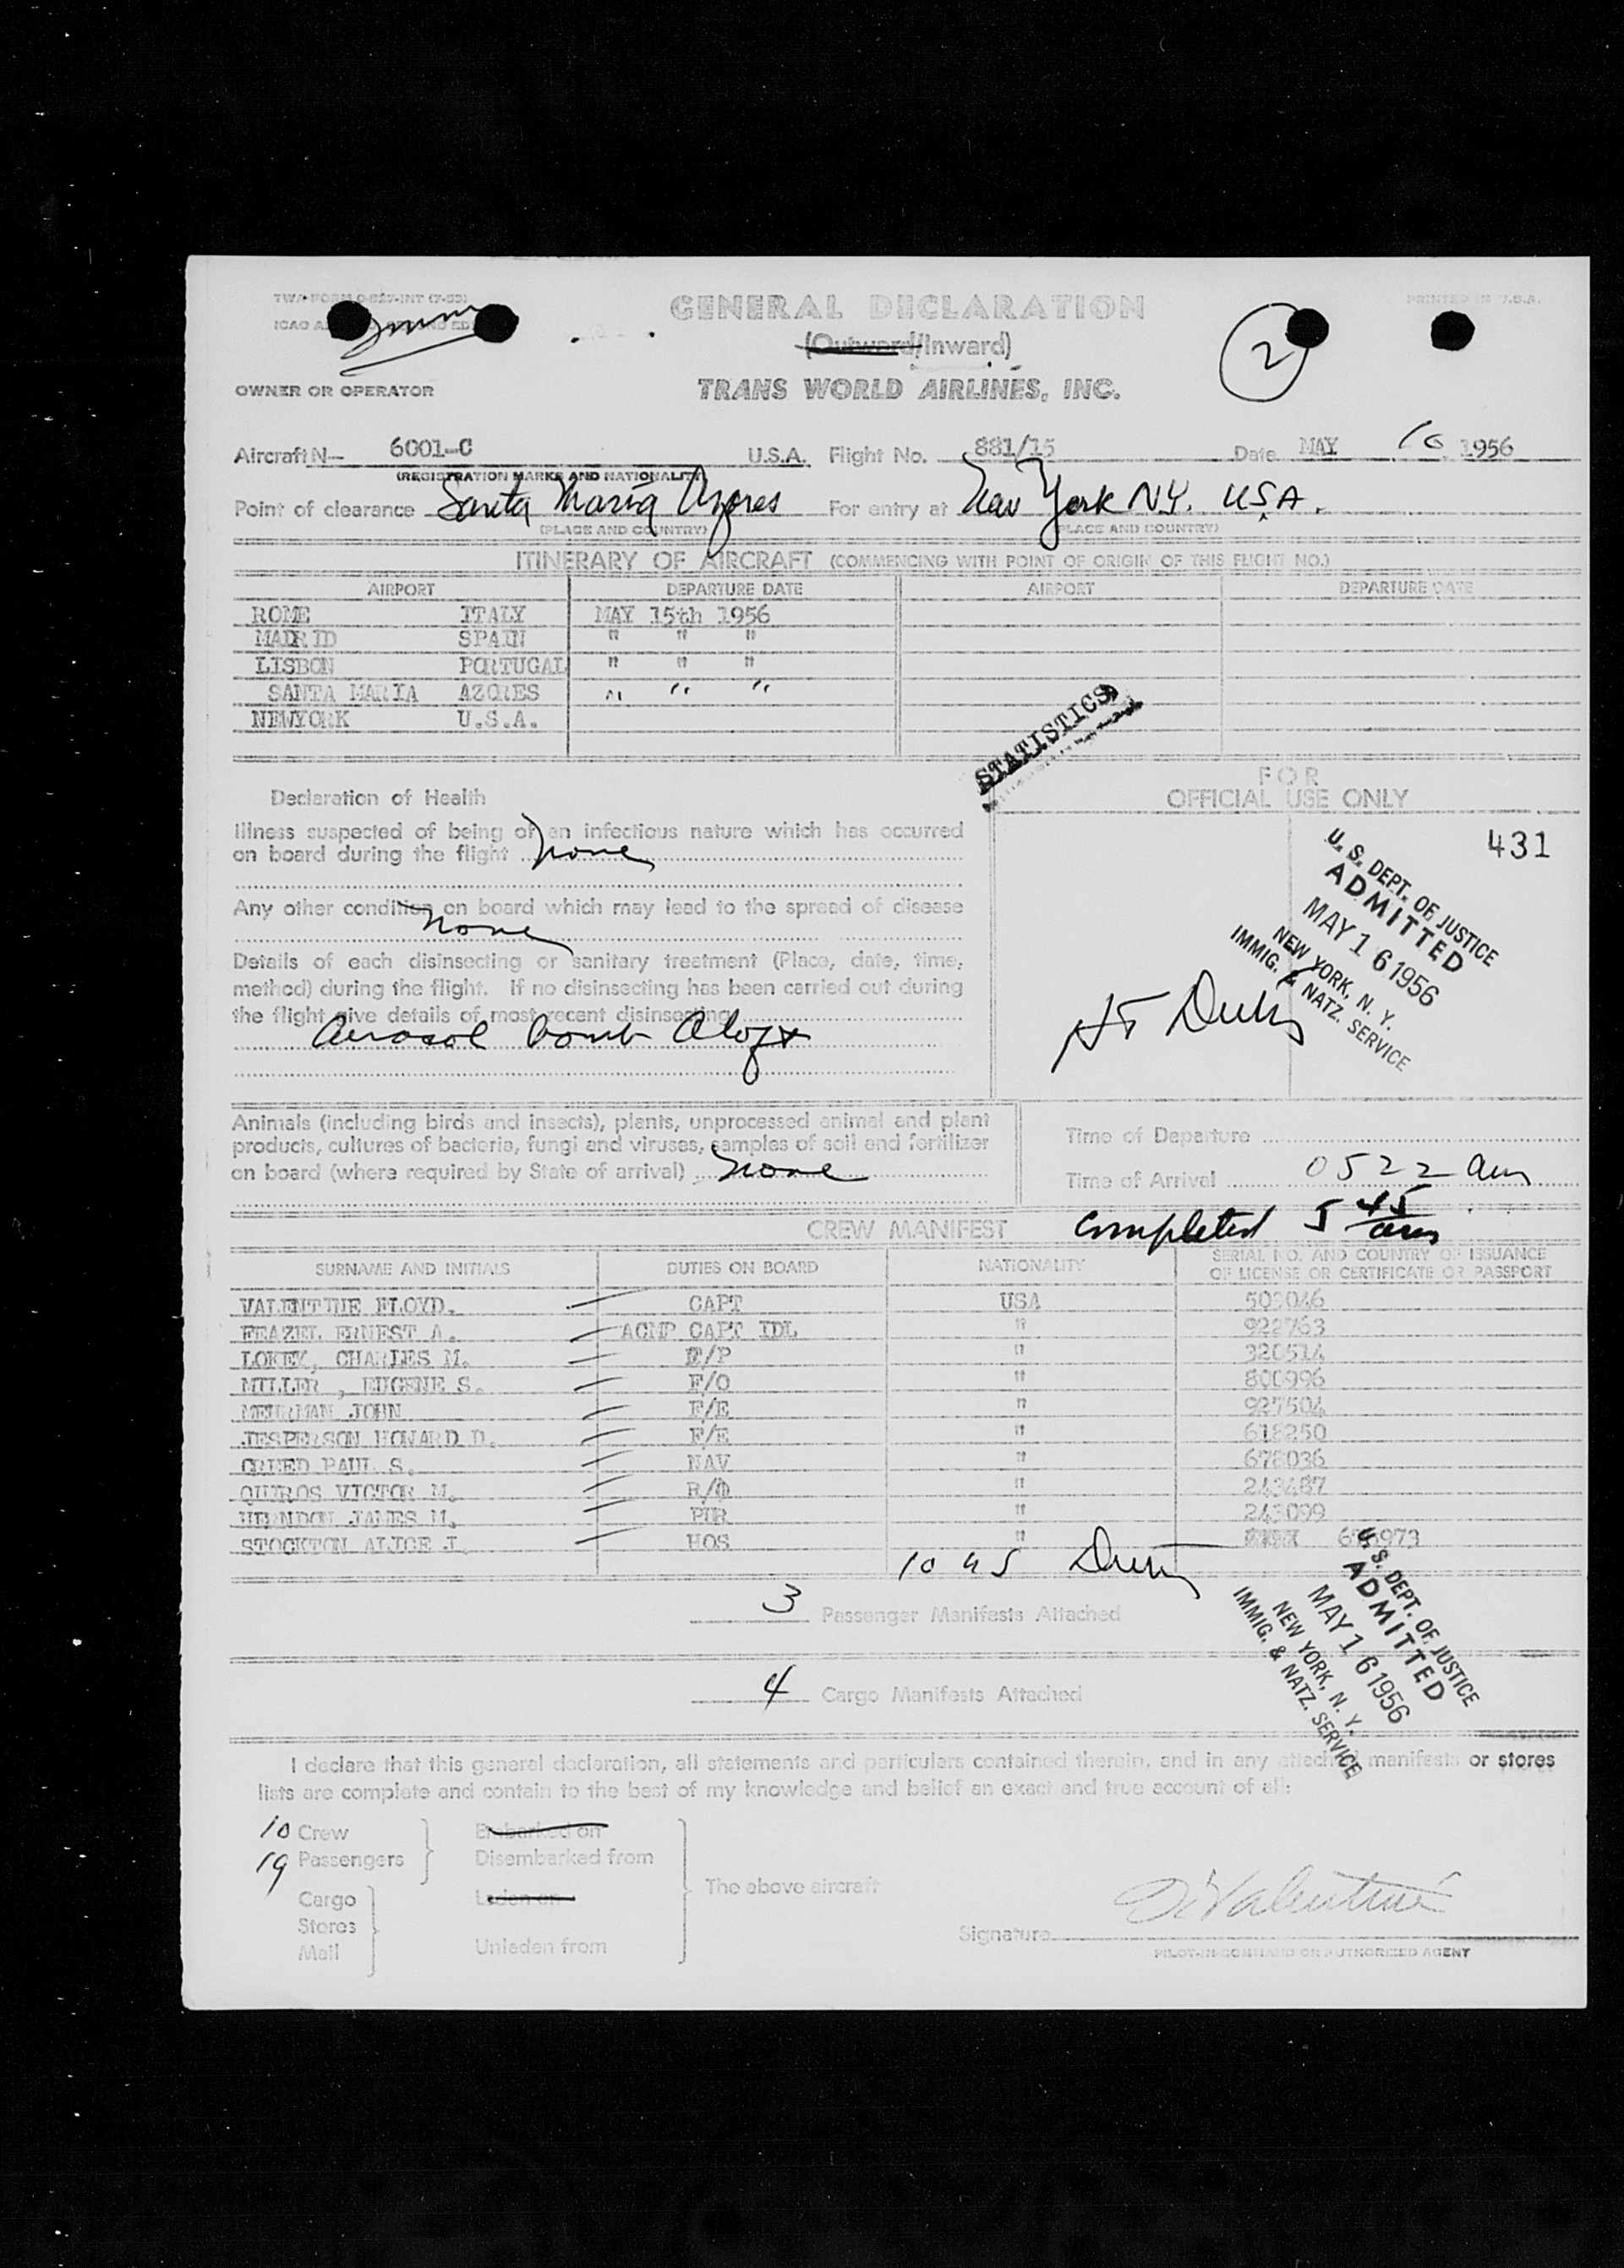 TWA FORM
PRINTED IN U.S.A.
ICAO
GENERAL DECLARATION
(Outward/Inward)
2
OWNER OR OPERATOR TRANS WORLD AIRLINES, INC.
Aircraft N- 6001-C U.S.A. Flight No. 881/15 Date MAY 16 1956
(REGISTRATION MARKS AND NATIONALITY)
Point of clearance Santa Maria Azores For entry at New York NY. USA.
(PLACE AND COUNTRY) (PLACE AND COUNTRY)
ITINERARY OF AIRCRAFT (COMMENCING WITH POINT OF ORIGIN OF THIS FLIGHT NO.)
AIRPORT DEPARTURE DATE AIRPORT DEPARTURE DATE
ROME ITALY MAY 15th 1956
MADRID SPAIN " " "
LISBON PORTUGAL " " "
SANTA MARIA AZORES " " "
NEWYORK U.S.A.
STATISTICS
FOR
OFFICIAL USE ONLY
431
Declaration of Health
Illness suspected of being of an infectious nature which has occurred
on board during the flight none
Any other condition on board which may lead to the spread of disease
none
Details of each disinsecting or sanitary treatment (Place, date, time,
method) during the flight. If no disinsecting has been carried out during
the flight give details of most recent disinsecting
Aerosol bomb
U. S. DEPT. OF JUSTICE
ADMITTED
MAY 16 1956
NEW YORK, N. Y.
IMMIG. & NATZ. SERVICE
Animals (including birds and insects), plants, unprocessed animal and plant
products, cultures of bacteria, fungi and viruses, samples of soil and fertilizer
on board (where required by State of arrival) none
Time of Departure
Time of Arrival 0522 am
completed 5 45 am
CREW MANIFEST
SURNAME AND INITIALS DUTIES ON BOARD NATIONALITY SERIAL NO. AND COUNTRY OF ISSUANCE
OF LICENSE OR CERTIFICATE OR PASSPORT
VALENTINE FLOYD. CAPT USA 502046
FEAZEL ERNEST A. ACMP CAPT IDL " 922763
LOKEY, CHARLES M. F/P " 320514
MILLER , EUGENE S. F/O " 800996
MEHRMAN JOHN F/E " 927504
JESPERSON HOWARD D. F/E " 618250
CREED PAUL S. NAV " 678036
QUIROS VICTOR M. R/O " 243487
HERNDON JAMES H. PUR " 243099
STOCKTON ALICE J. HOS "
10 US
3 Passenger Manifests Attached
4 Cargo Manifests Attached
U. S. DEPT. OF JUSTICE
ADMITTED
MAY 16 1956
NEW YORK, N. Y.
IMMIG. & NATZ. SERVICE
I declare that this general declaration, all statements and particulars contained therein, and in any attached manifests or stores
lists are complete and contain to the best of my knowledge and belief an exact and true account of all:
10 Crew Embarked on
19 Passengers Disembarked from
The above aircraft
Cargo Laden on
Stores
Mail Unladen from
Signature Valentine
PILOT-IN-COMMAND OR AUTHORIZED AGENT